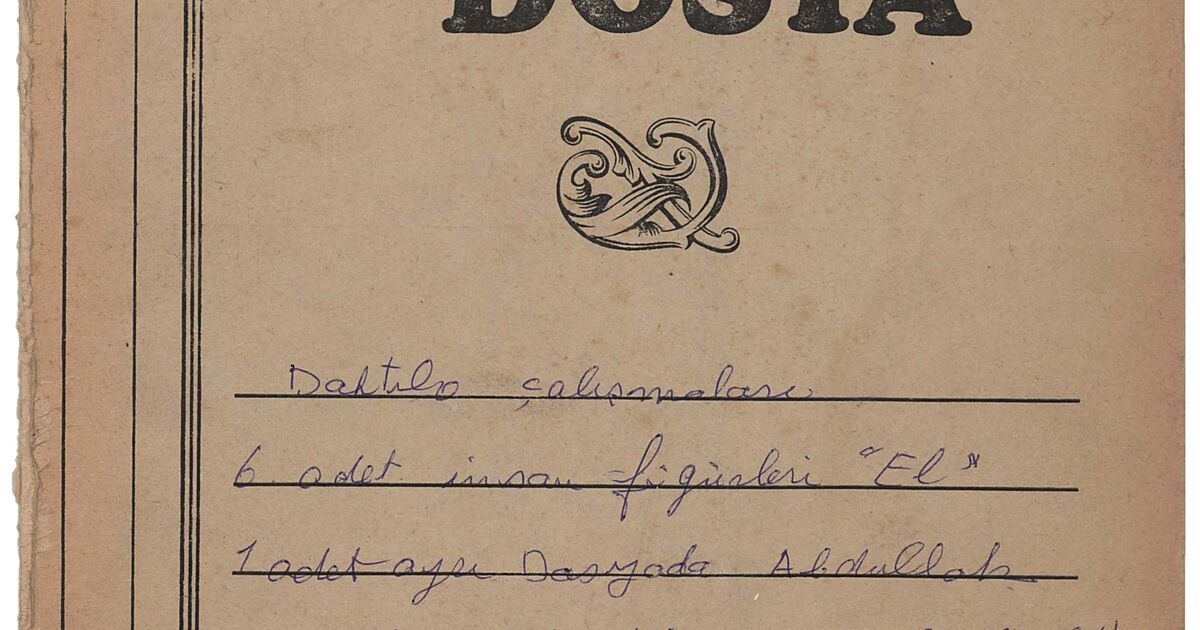 DOSYA
Daktilo çalışmaları
6 adet insan figürleri "El"
1 adet ayrı Dosyada Abdullah